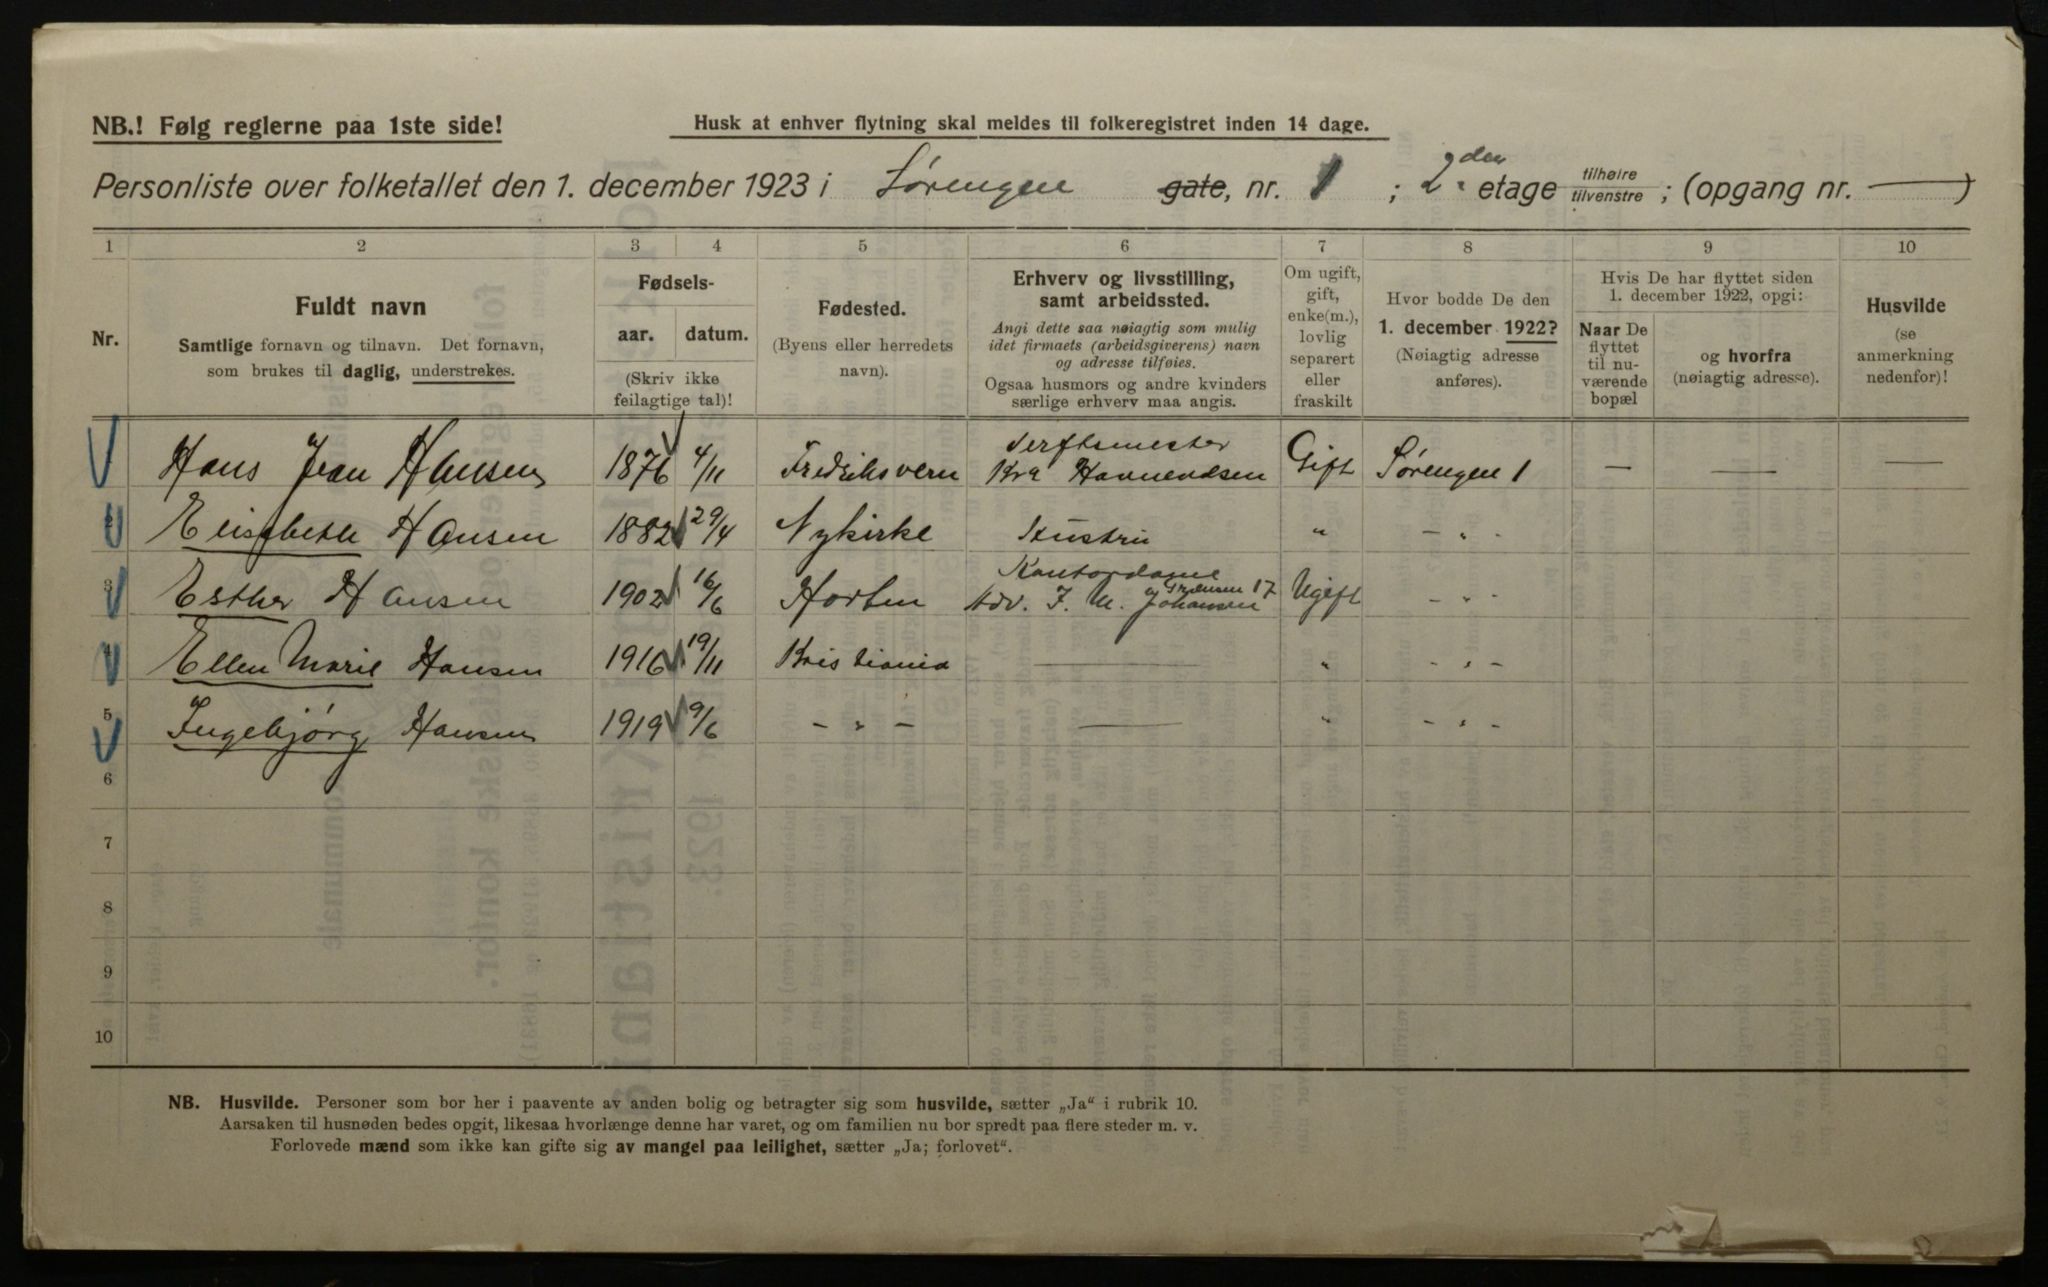 NB.! Følg reglerne paa 1ste side!
Husk at enhver flytning skal meldes til folkeregistret inden 14 dage.
Personliste over folketallet den 1. december 1923 i Sørengen gate, nr. 1 ; 2den etage tilhøire tilvenstre ; (opgang nr. — )
1 2 3 4 5 6 7 8 9 10
Nr.
Fuldt navn
Samtlige fornavn og tilnavn. Det fornavn,
som brukes til daglig, understrekes.
Fødsels-
aar. datum.
(Skriv ikke
feilagtige tal)!
Fødested.
(Byens eller herredets
navn).
Erhverv og livsstilling,
samt arbeidssted.
Angi dette saa nøiagtig som mulig
idet firmaets (arbeidsgiverens) navn
og adresse tilføies.
Ogsaa husmors og andre kvinders
særlige erhverv maa angis.
Om ugift,
gift,
enke(m.),
lovlig
separert
eller
fraskilt
Hvor bodde De den
1. december 1922?
(Nøiagtig adresse
anføres).
Hvis De har flyttet siden
1. december 1922, opgi:
Naar De
flyttet
til nu-
værende
bopæl
og hvorfra
(nøiagtig adresse).
Husvilde
(se
anmerkning
nedenfor)!
Hans Jean Hansen 1876 4/11 Fredriksvern Verftsmester Kra Havnevæsen Gift Sørengen 1 — — —
2 Elisabeth Hansen 1882 29/4 Nykirke Hustru " - " -
3 Esther Hansen 1902 16/6 Horten Kontordame Adv. F. M. Johansen 17 Ugift - " -
4 Ellen Marie Hansen 1916 19/11 Kristiania — " - " -
5 Ingebjørg Hansen 1919 9/6 - " - — " - " -
6
7
8
9
10
NB. Husvilde. Personer som bor her i paavente av anden bolig og betragter sig som husvilde, sætter „Ja“ i rubrik 10.
Aarsaken til husnøden bedes opgit, likesaa hvorlænge denne har varet, og om familien nu bor spredt paa flere steder m. v.
Forlovede mænd som ikke kan gifte sig av mangel paa leilighet, sætter „Ja; forlovet“.